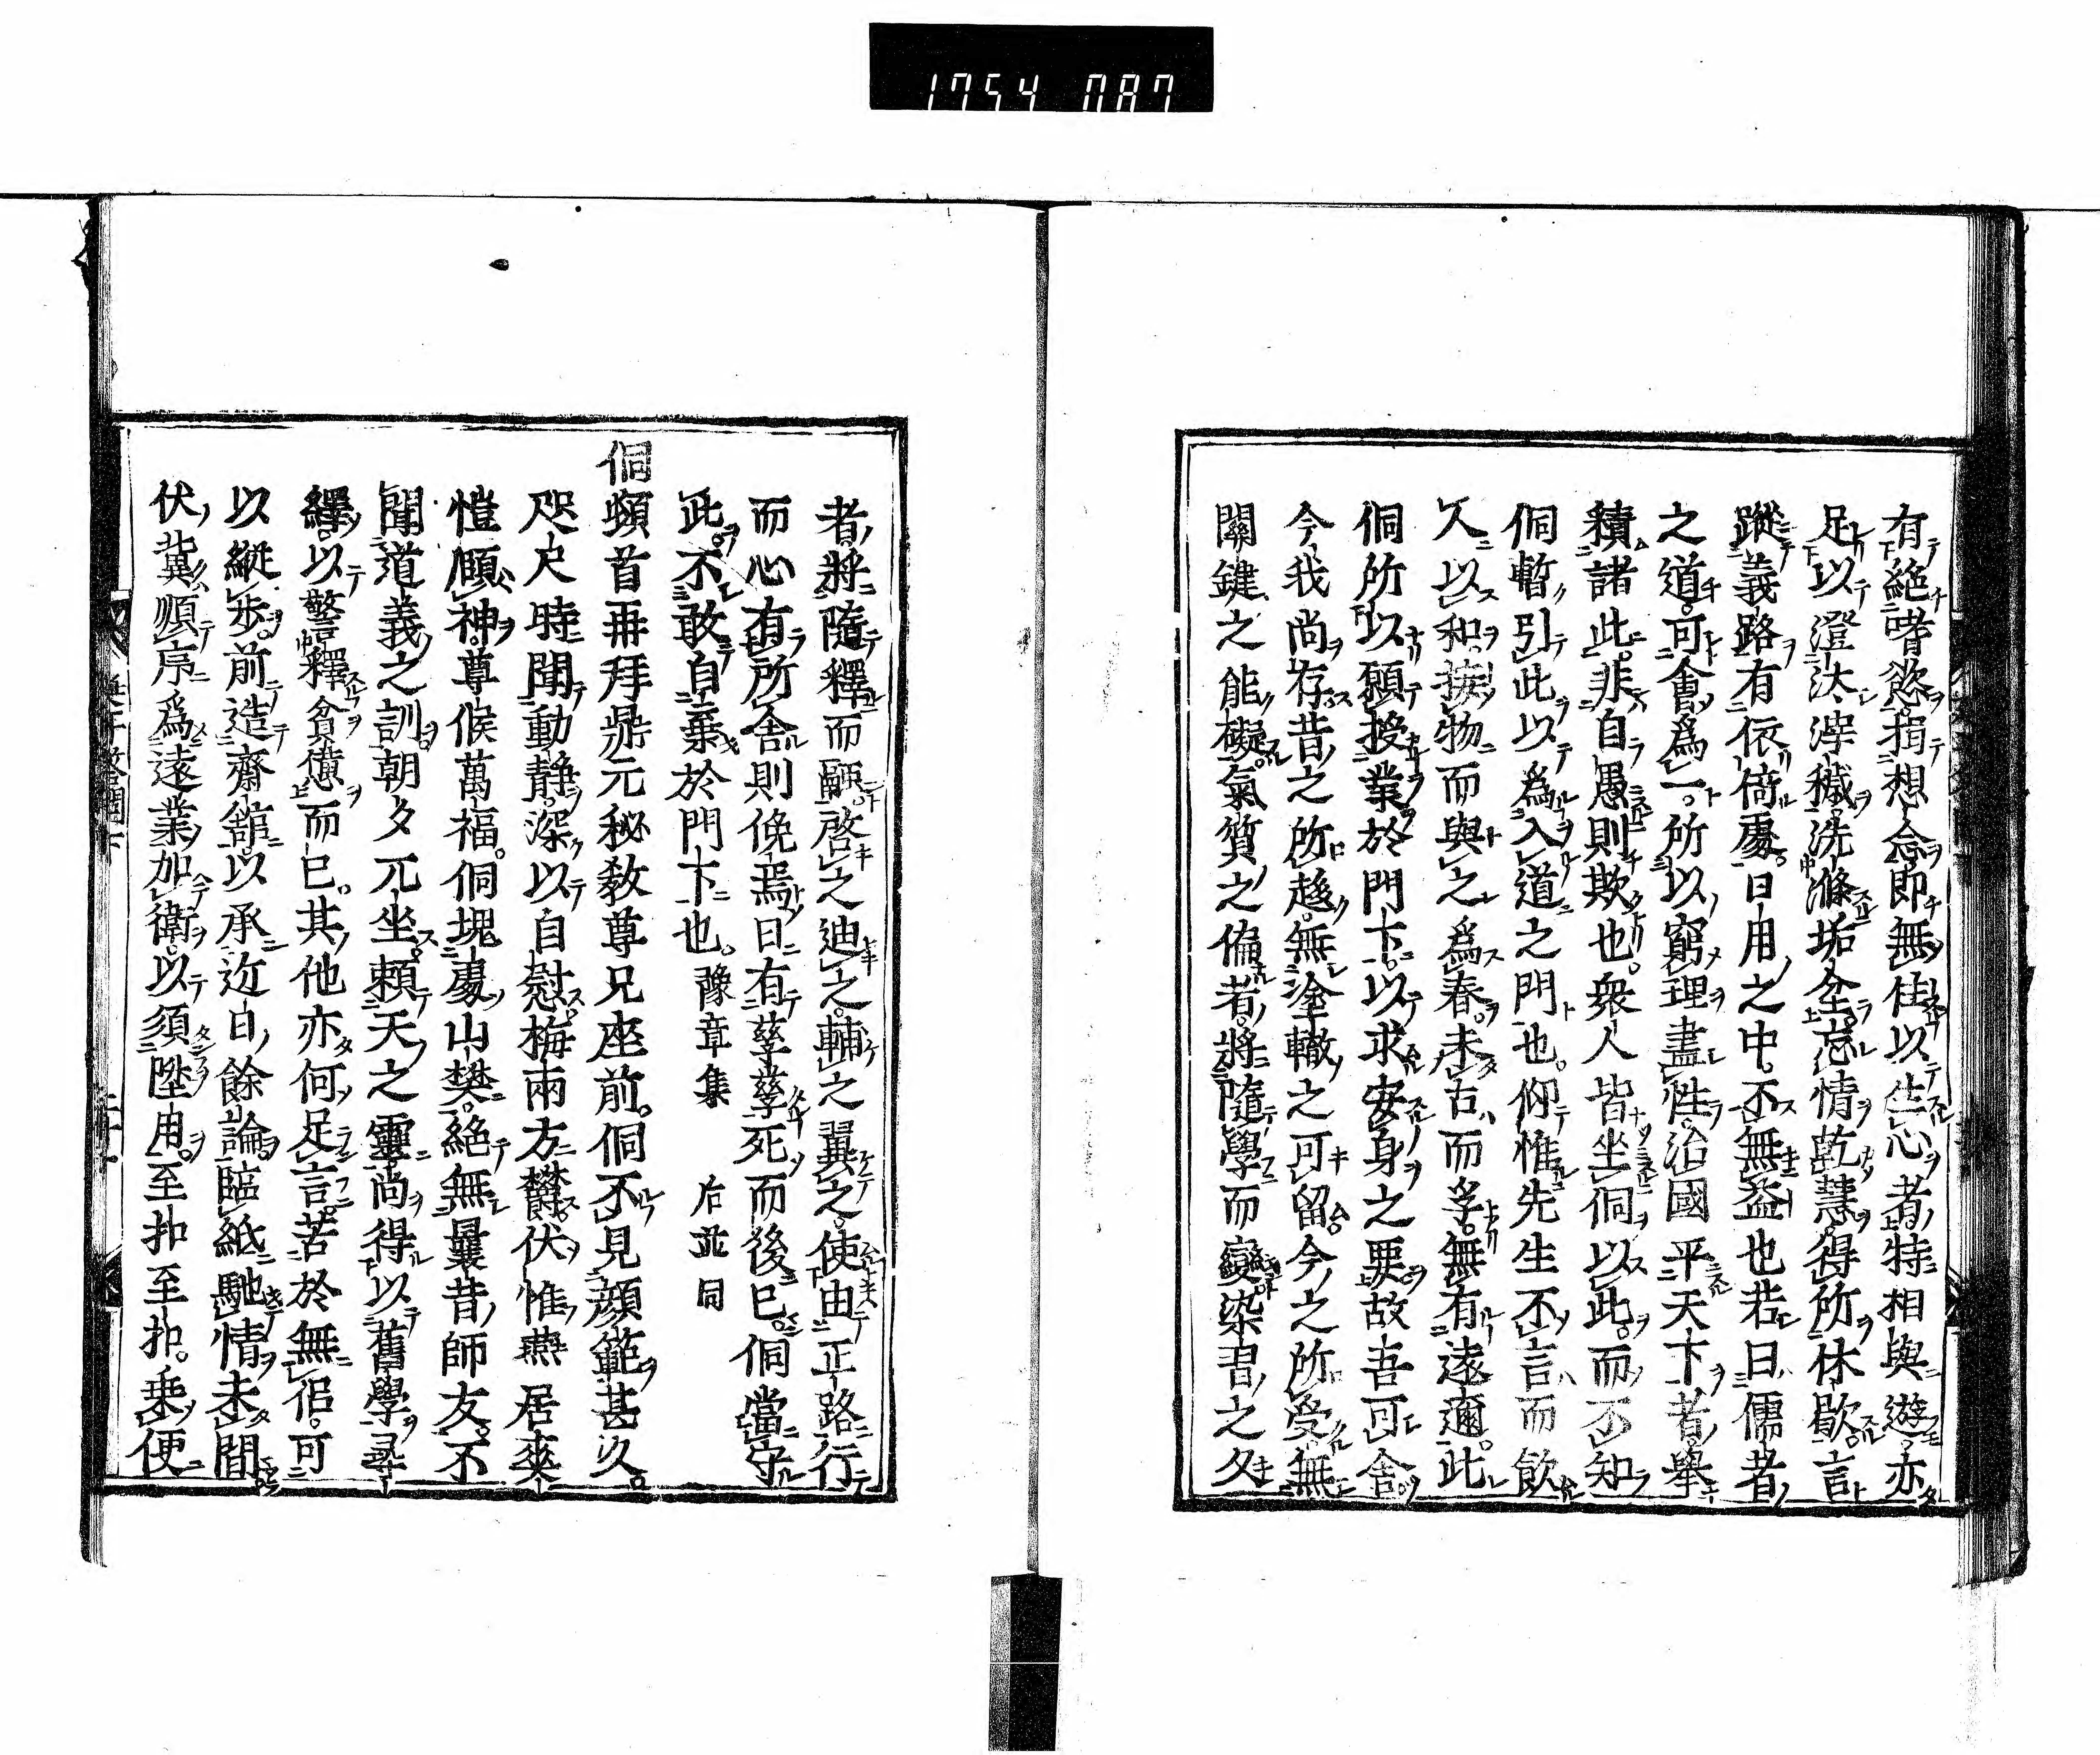 1754 087
有絶嗜慾損想念即無住以生心者特相與遊亦
足以澄汰滓穢洗滌垢坌忘情乾慧得所休歇言
蹤義路有依倚處日用之中不無益也若曰儒者
之道可會為一所以窮理盡性治國平天下者舉
積諸此非自愚則欺也衆人皆坐侗以此而不知
侗暫引此以為入道之門也仰惟先生不言而飲
人以和接物而與之為春未占而孚無有遠邇此
侗所以願授業於門下以求安身之要故吾可舍
今我尚存昔之所趍無塗轍之可留今之所受無
關鍵之能礙氣質之偏者將隨學而變染習之久
者將隨釋而融啓之迪之輔之翼之使由正路行
而心有所舎則俛焉日有孳孳死而後已侗當守
此不敢自棄於門下也豫章集 后並同
侗頓首再拜鼎元秘教尊兄座前侗不見顔範甚久
咫尺時聞動靜深以自慰梅雨方欝伏惟燕居來
愷頤神尊候萬福侗塊處山樊絶無曩昔師友不
聞道義之訓朝夕兀坐頼天之靈尚得以舊學尋
繹以警釋貧憊而已其他亦何足言苦於無侶可
以縦步前造齋舘以承近日餘論臨紙馳情未間
伏冀順序為遠業加衛以須陞用至扣至扣乗便